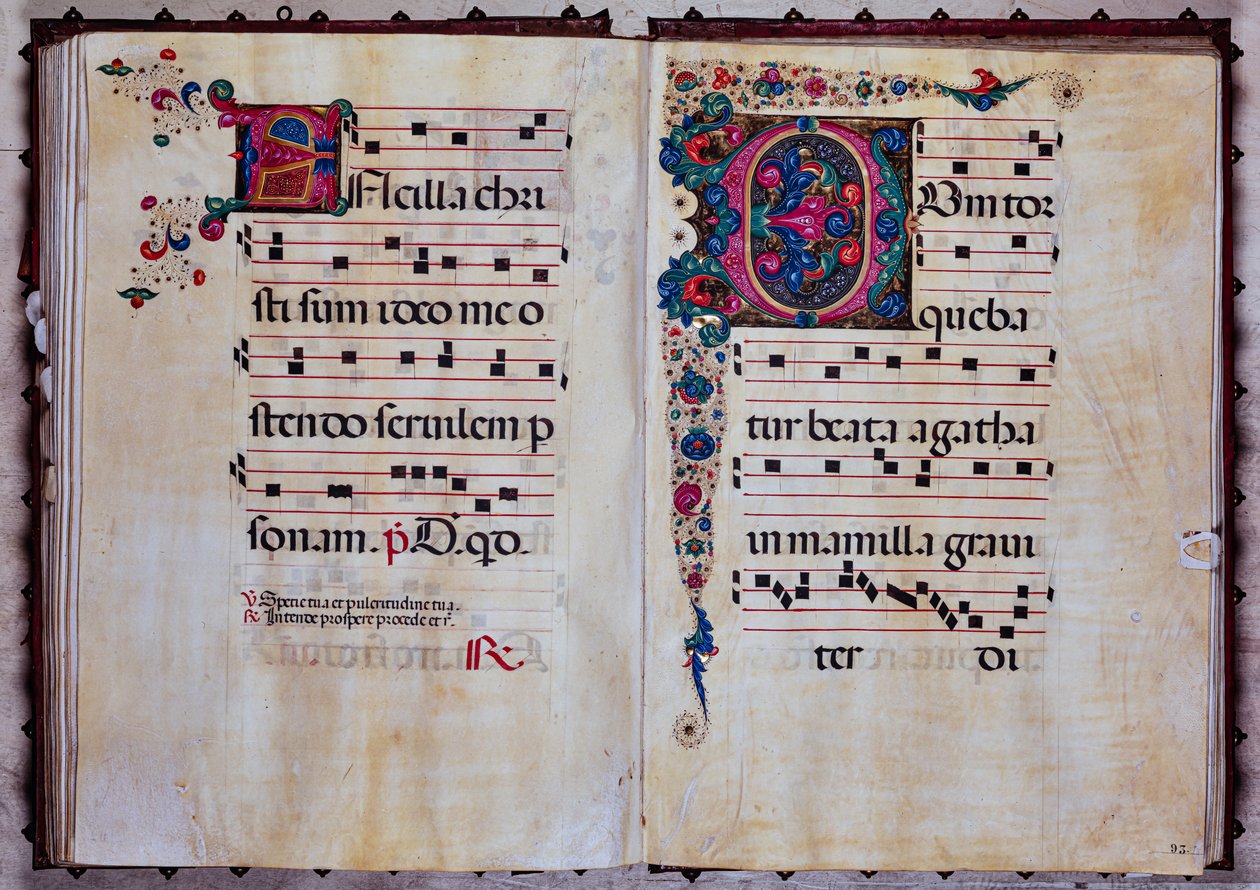 Ancilla chri
sti sum ideo me o
stendo seruilem p
sonam. p̄. D̄. qd.
℣ Specie tua et pulcritudine tua.
℟ Intende prospere procede et r̄.
℟
DVm tor
queba
tur beata agatha
in mamilla graui
ter di
93.